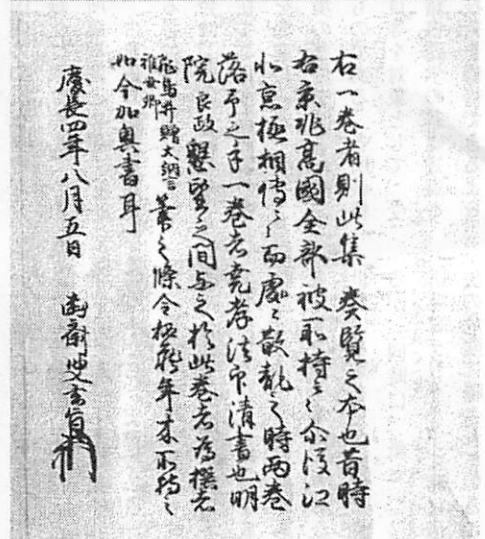 右一巻者則此集 奏覧之本也昔時
右京兆高國全部被取持之尓後江
北京極相傳之而處々散乱之時両巻
落予之手一巻者堯孝法印清書也明
院良政懇望之間与之於此巻者為撰者
飛鳥井贈大納言
雅世卿
筆之條令年来所持之
如今加奥書耳
慶長四年八月五日 幽斎叟玄旨